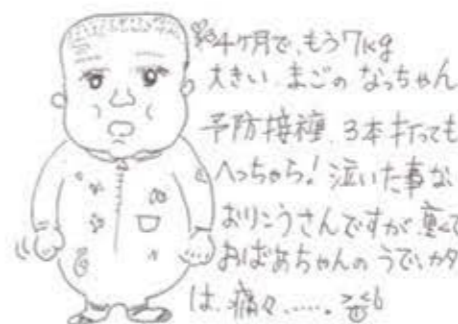 4ヶ月で、もう7kg
大きい まごの なっちゃん
予防接種、3本打っても
へっちゃら! 泣いた事な
おりこうさんですが、重くて
おばあちゃんの うで、カタ
は、痛々……。